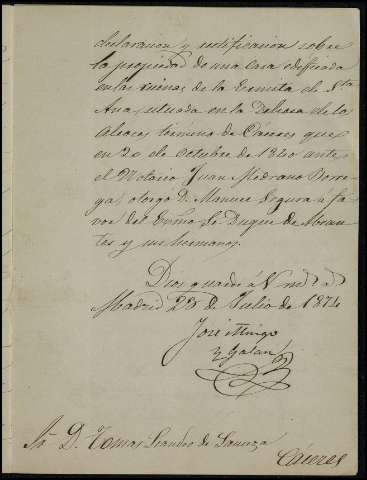 declaracion y justificacion sobre
la propiedad de una casa edificada
en las ruinas de la Ermita de Sta
Ana, situada en la Dehesa de la
termino de Cáceres que
en 20 de Octubre de 1840 ante
el Notario Juan Medrano Borre-
ga, otorgó D. Manuel Segura á fa-
vor del Exmo Sr. Duque de Abran-
tes y sus hermanos.
Dios guarde á V. ms. as.
Madrid 23 de Julio de 1874
José Mingo
y Galan
Sr. D. Tomas de
Cáceres